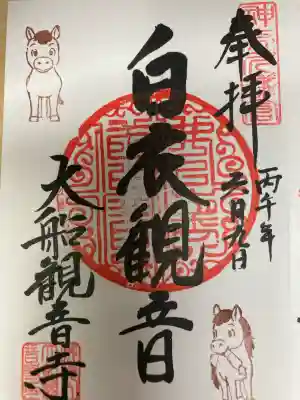 奉拝
丙午年
二月九日
白衣観音
大船観音寺